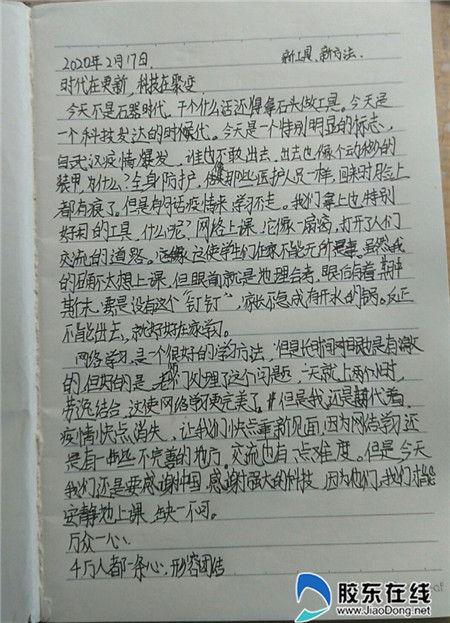 2020年2月17日. 新工具.新方法.
时代在更新,科技在聚变
今天不是石器时代。干个什么活还得拿石头做工具。今天是
一个科技发达的时候代。今天是一个特别明显的标志,
自武汉疫情爆发,谁也不敢出去,出去也像个动移的
装甲,为什么?全身防护,像那些医护人员一样,回来时脸上
都有痕了。但是有句话疫情来,学习不走。我们掌上也特别
好用的工具,什么呢?网络上课,它像一扇窗,打开了人们
交流的道路。这使学生们在家不能无所事事。虽然我
的确不太想上课,但眼前就是地理会考,眼后有着期中
期末,要是没有这个“钉钉”,家长不急成有开水的锅。反正
不能出去,就好好在家学习。
网络学习,是个很好的学习方法,但是长时间对目也是有
的,但好的是,老们处理了这个问题,一天就上两个小时,
劳逸结合,这使网络学习更完美了。但是我还是期代着,
疫情快点消失,让我们快点重新见面,因为网络学习还
是有一些些不完善的地方。交流也有一点难度。但是今天
我们还是要感谢中国,感谢强大的科技,因为他们,我们才能
安静地上课,缺一不可。
万众一心.
4万人都一条心,形容团结
胶东在线
www.JiaoDong.net